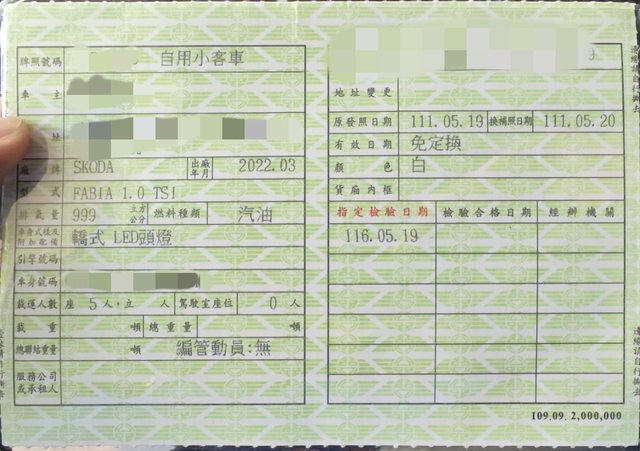 牌照號碼 自用小客車
車主
址
廠牌 SKODA 出廠年月 2022.03
型式 FABIA 1.0 TSI
排氣量 999 立方公分 燃料種類 汽油
車身式樣及附加配備 轎式 LED頭燈
引擎號碼
車身號碼
載運人數 座 5人,立 人 駕駛室座位 0 人
載重 噸 總重量 噸
總聯結重量 噸 編管動員:無
服務公司或承租人
地址變更
原發照日期 111.05.19 換補照日期 111.05.20
有效日期 免定換
顏色 白
貨廂內框
指定檢驗日期 檢驗合格日期 經辦機關
116.05.19
109.09. 2,000,000